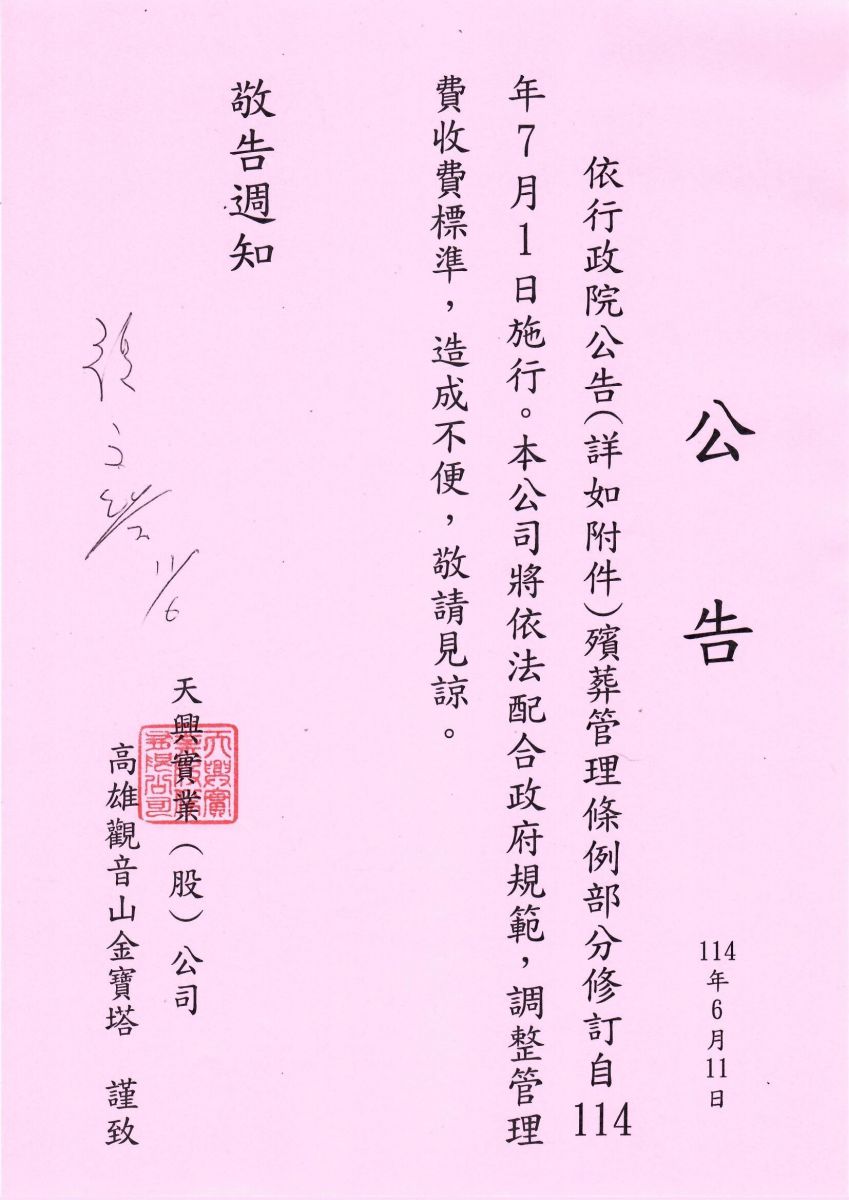 公告
114年6月11日
依行政院公告(詳如附件)殯葬管理條例部分修訂自114
年7月1日施行。本公司將依法配合政府規範，調整管理
費收費標準，造成不便，敬請見諒。
敬告週知
11/6
天興實業(股)公司
高雄觀音山金寶塔 謹致